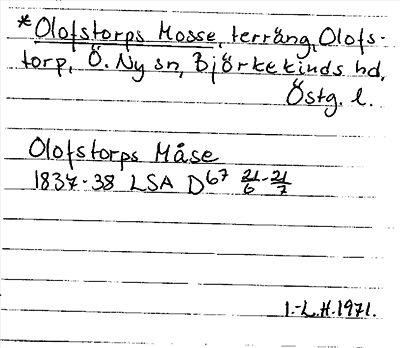 *Olofstorps Mosse, terräng, Olofs-
torp, Ö. Ny sn, Björkekinds hd,
Östg. l.
Olofstorps Måse
1837-38 LSA D67 21/6-21/7
I.-L.H. 1971.